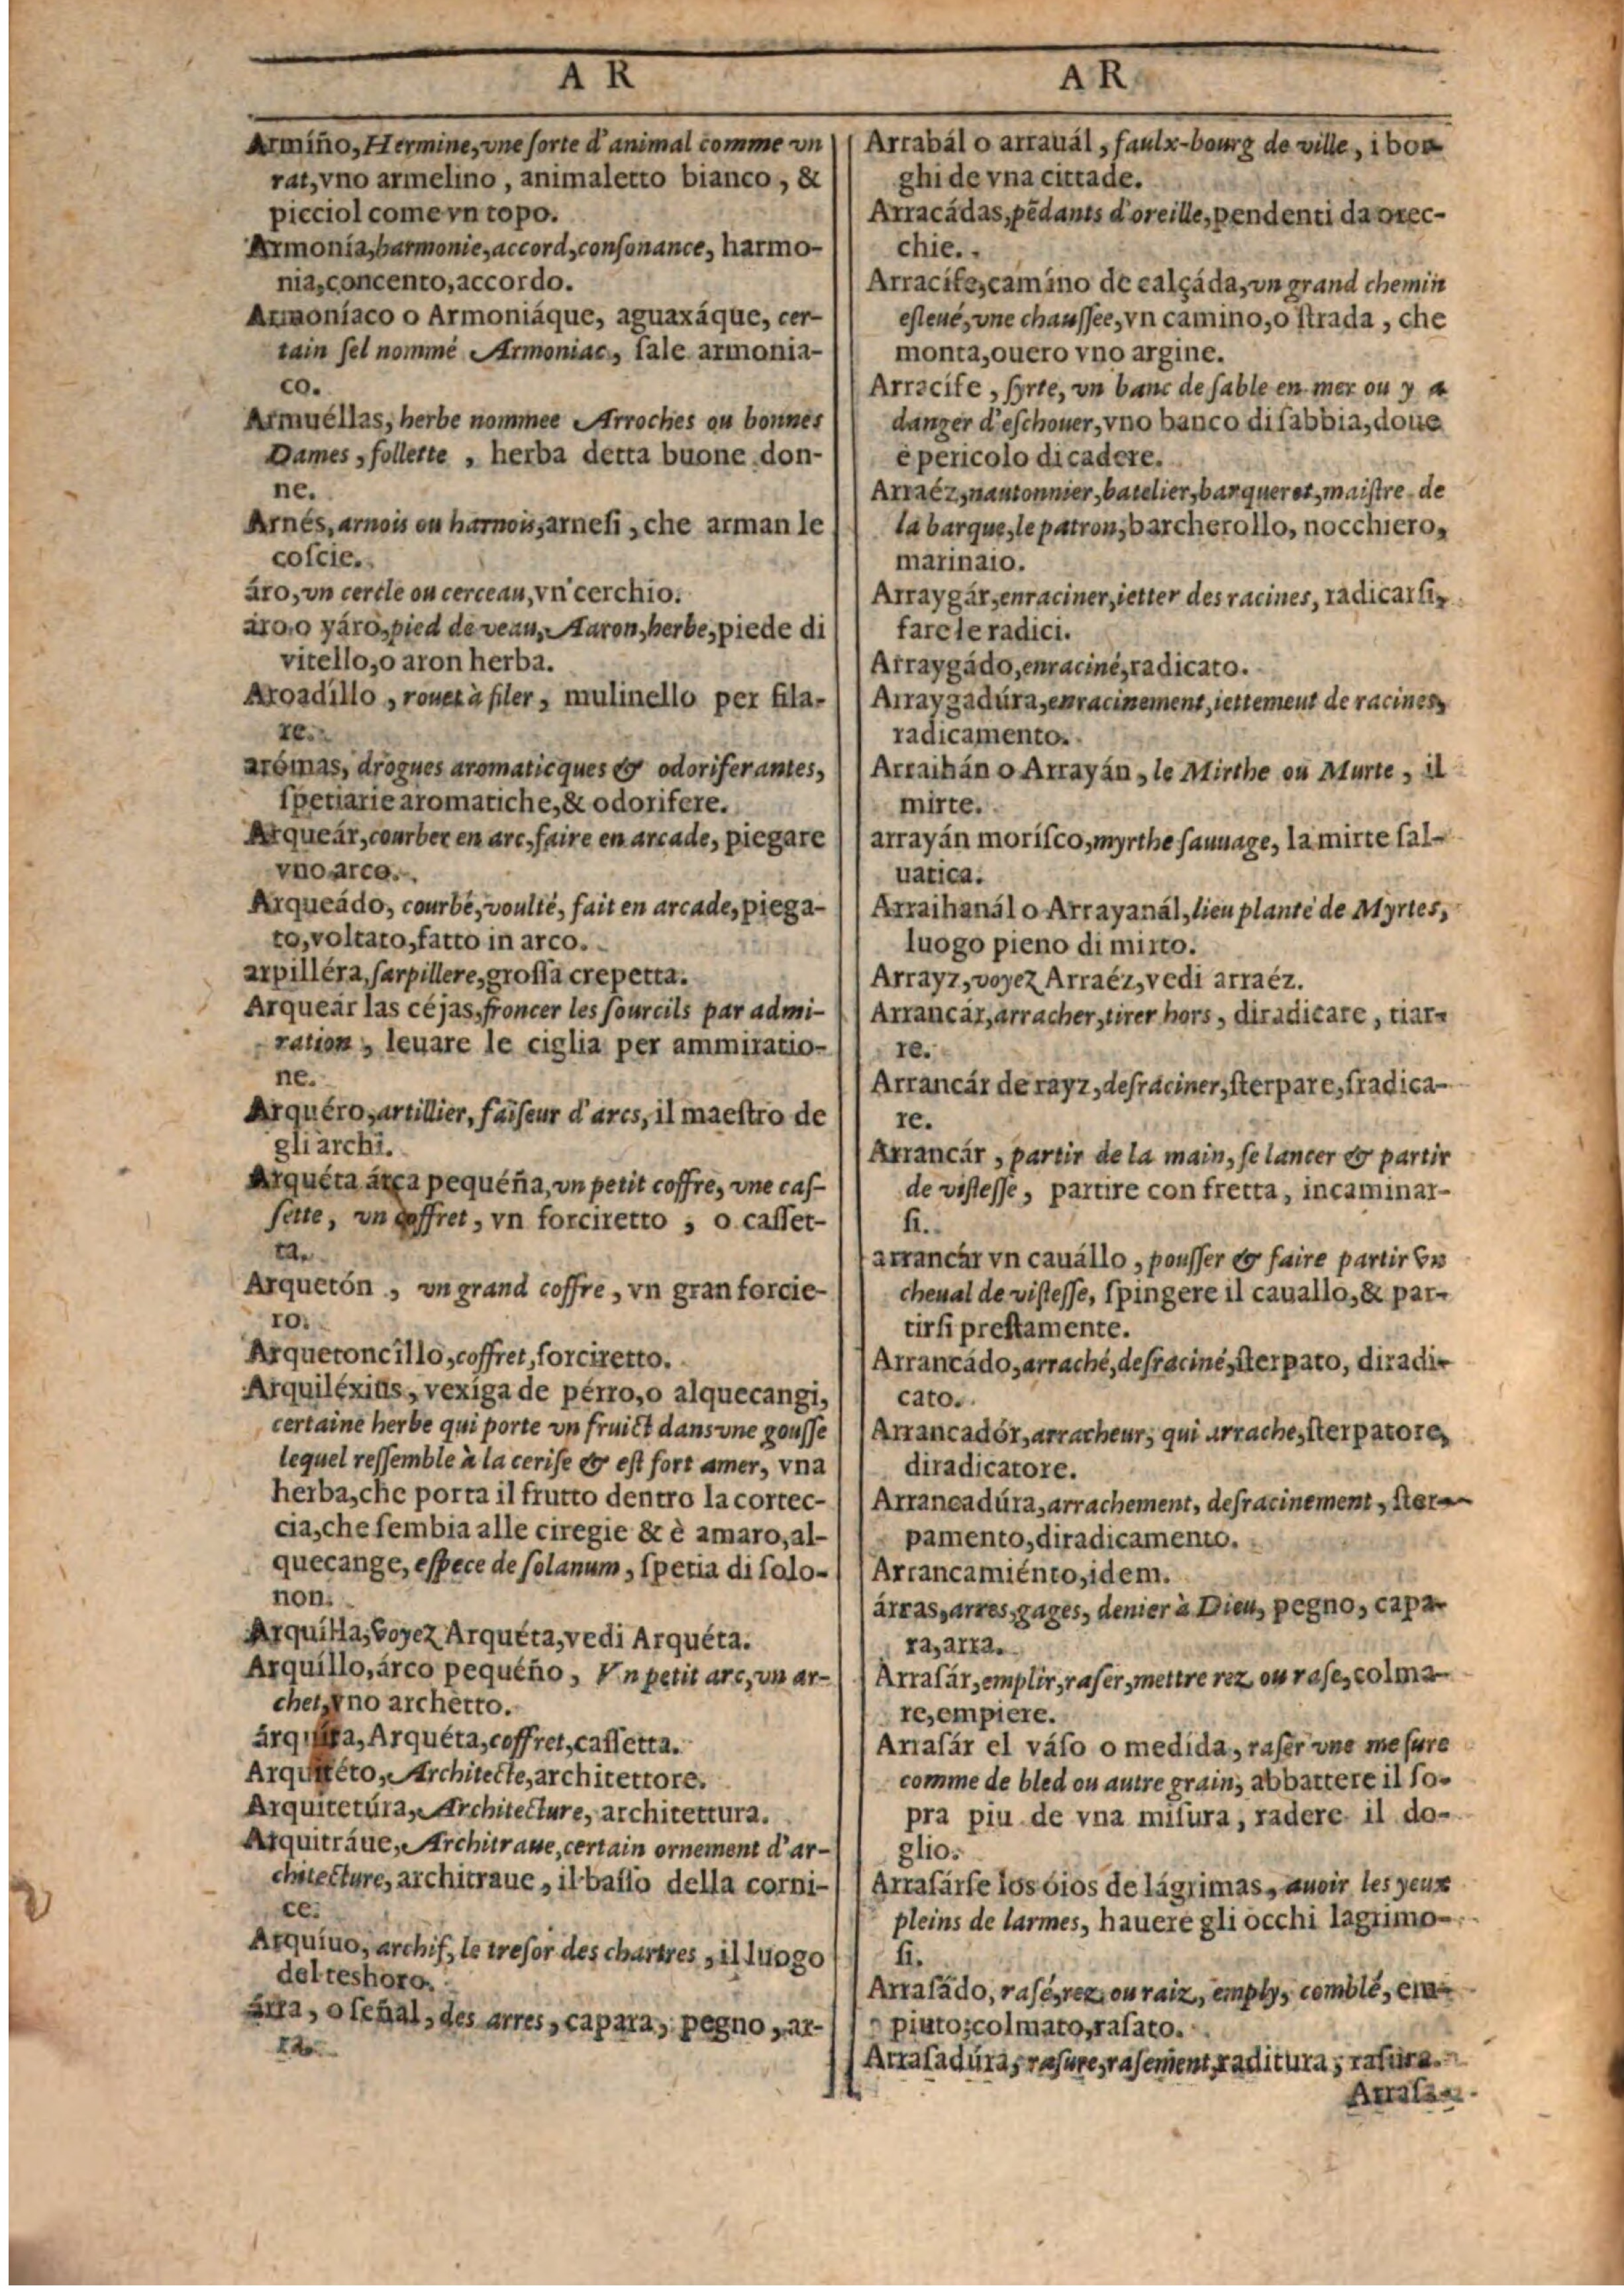 A R
Armíño, Hermine, vne ſorte d'animal comme vn
rat, vno armelino, animaletto bianco, &
picciol come vn topo.
Armonía, harmonie, accord, conſonance, harmo-
nia, concento, accordo.
Armoníaco o Armoniáque, aguaxáque, cer-
tain ſel nommé Armoniac, ſale armonia-
co.
Armuéllas, herbe nommee Arroches ou bonnes
Dames, follette, herba detta buone don-
ne.
Arnés, arnois ou harnois, arneſi, che arman le
coſcie.
áro, vn cercle ou cerceau, vn cerchio.
áro, o yáro, pied de veau, Aaron, herbe, piede di
vitello, o aron herba.
Aroadíllo, rouet à filer, mulinello per fila-
re.
arómas, drogues aromaticques & odoriferantes,
ſpetiarie aromatiche, & odorifere.
Arqueár, courber en arc, faire en arcade, piegare
vno arco.
Arqueádo, courbé, voulté, fait en arcade, piega-
to, voltato, fatto in arco.
arpilléra, ſarpillere, groſſa crepetta.
Arqueár las céjas, froncer les ſourcils par admi-
ration, leuare le ciglia per ammiratio-
ne.
Arquéro, artillier, faiſeur d'arcs, il maeſtro de
gli archi.
Arquéta árca pequéña, vn petit coffre, vne caſ-
ſette, vn coffret, vn forciretto, o caſſet-
ta.
Arquetón, vn grand coffre, vn gran forcie-
ro.
Arquetoncíllo, coffret, forciretto.
Arquiléxias, vexíga de pérro, o alquecangi,
certaine herbe qui porte vn fruict dans vne gouſſe
lequel reſſemble à la ceriſe & eſt fort amer, vna
herba, che porta il frutto dentro la cortec-
cia, che ſembia alle ciregie & è amaro, al-
quecange, eſpece de ſolanum, ſpetia di ſolo-
non.
Arquílla, voyez Arquéta, vedi Arquéta.
Arquíllo, árco pequéño, Vn petit arc, vn ar-
chet, vno archetto.
árquita, Arquéta, coffret, caſſetta.
Arquitéto, Architecte, architettore.
Arquitetúra, Architecture, architettura.
Arquitráue, Architraue, certain ornement d'ar-
chitecture, architraue, il baſſo della corni-
ce.
Arquíuo, archif, le treſor des chartres, il luogo
del teshoro.
árra, o ſeñal, des arres, capara, pegno, ar-
ra.
A R
Arrabál o arrauál, faulx-bourg de ville, i bor-
ghi de vna cittade.
Arracádas, pẽdants d'oreille, pendenti da orec-
chie.
Arracífe, camíno de calçáda, vn grand chemin
eſleué, vne chauſſee, vn camino, o ſtrada, che
monta, ouero vno argine.
Arracífe, ſyrte, vn banc de ſable en mer ou y a
danger d'eſchouer, vno banco di ſabbia, doue
è pericolo di cadere.
Arraéz, nautonnier, batelier, barquerot, maiſtre de
la barque, le patron, barcherollo, nocchiero,
marinaio.
Arraygár, enraciner, ietter des racines, radicarſi,
fare le radici.
Arraygádo, enraciné, radicato.
Arraygadúra, enracinement, iettement de racines,
radicamento.
Arraihán o Arrayán, le Mirthe ou Murte, il
mirte.
arrayán moríſco, myrthe ſauuage, la mirte ſal-
uatica.
Arraihanál o Arrayanál, lieu planté de Myrtes,
luogo pieno di mirto.
Arrayz, voyez Arraéz, vedi arraéz.
Arrancár, arracher, tirer hors, diradicare, tiar-
re.
Arrancár de rayz, deſraciner, ſterpare, ſradica-
re.
Arrancár, partir de la main, ſe lancer & partir
de viſteſſe, partire con fretta, incaminar-
ſi.
arrancár vn cauállo, pouſſer & faire partir vn
cheual de viſteſſe, ſpingere il cauallo, & par-
tirſi preſtamente.
Arrancádo, arraché, deſraciné, ſterpato, diradi-
cato.
Arrancadór, arracheur, qui arrache, ſterpatore,
diradicatore.
Arrancadúra, arrachement, deſracinement, ſter-
pamento, diradicamento.
Arrancamiénto, idem.
árras, arres, gages, denier à Dieu, pegno, capa-
ra, arra.
Arraſár, emplir, raſer, mettre rez ou raſe, colma-
re, empiere.
Arraſár el váſo o medida, raſer vne meſure
comme de bled ou autre grain, abbattere il ſo-
pra piu de vna miſura, radere il do-
glio.
Arraſárſe los óios de lágrimas, auoir les yeux
pleins de larmes, hauere gli occhi lagrimo-
ſi.
Arraſádo, raſé, rez ou raiz, emply, comblé, em-
piuto, colmato, raſato.
Arraſadúra, raſure, raſement, raditura, raſura.
Arraſa-